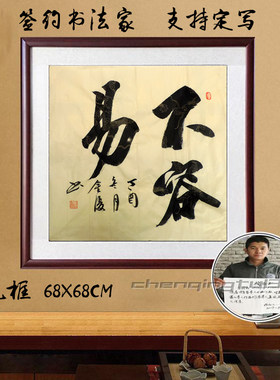 签约书法家 支持定写
不容
易
丁酉
冬月
金陵
书
框 68X68CM